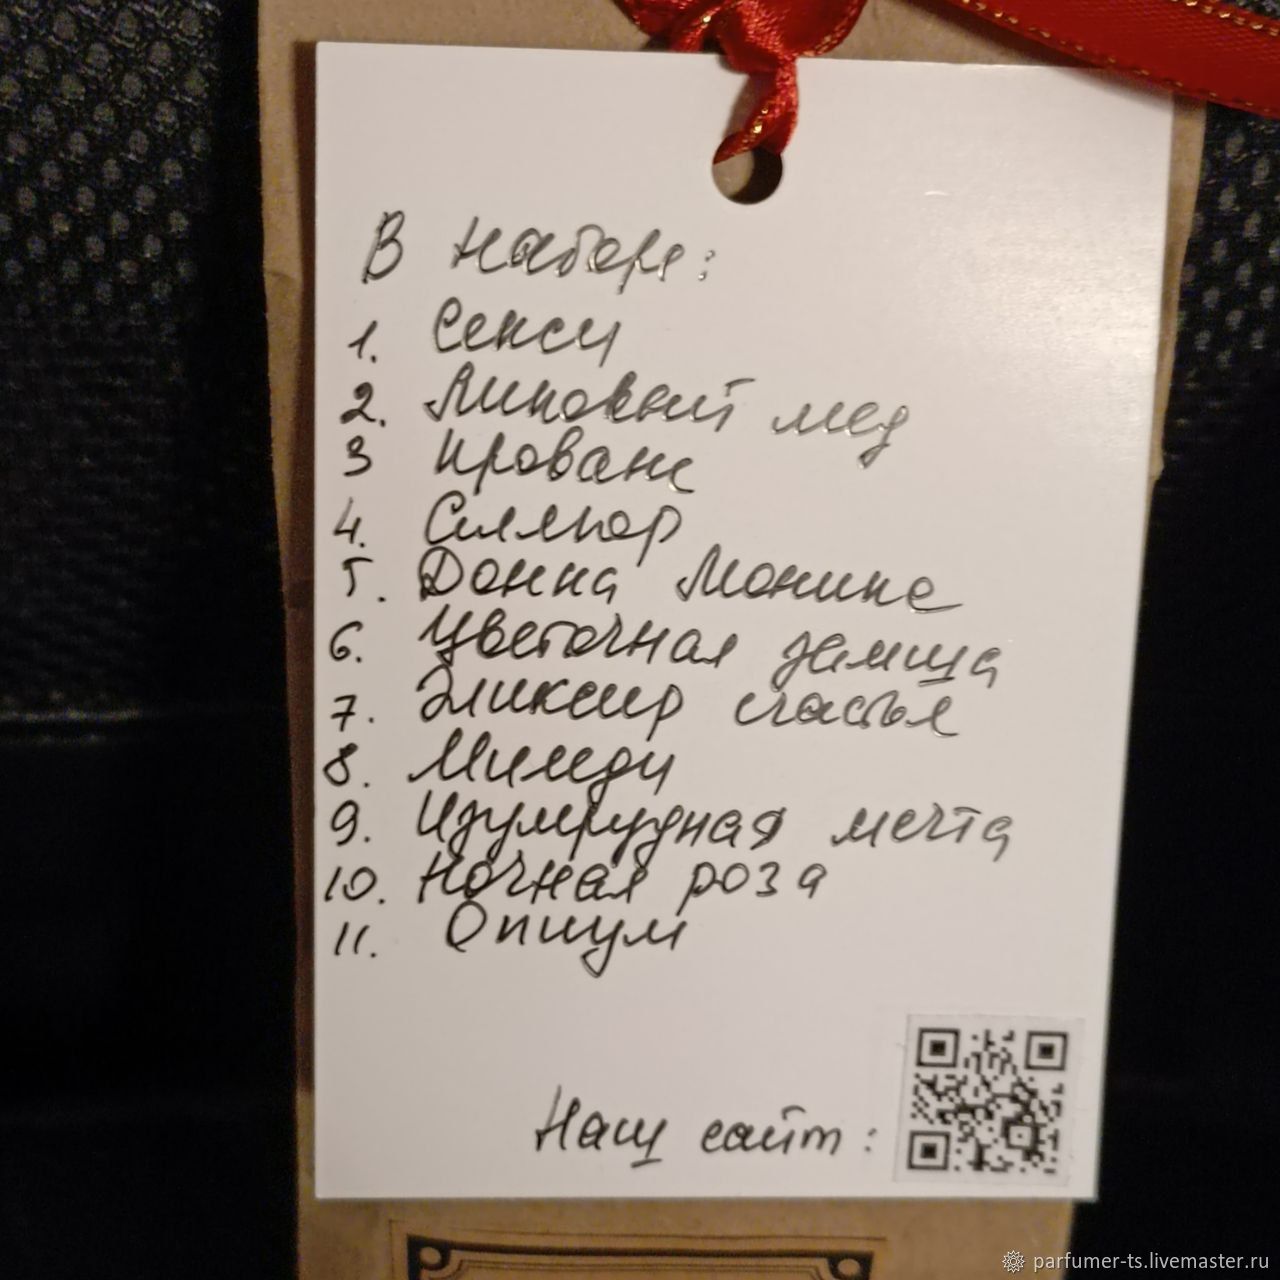 В наборе:
1. Секси
2. Липовый мед
3 Прованс
4. Сиямор
5. Донна Монике
6. Цветочная замша
7. Эликсир счастья
8. Миледи
9. Изумрудная мечта
10. Ночная роза
11. Опиум
Наш сайт:
parfumer-ts.livemaster.ru